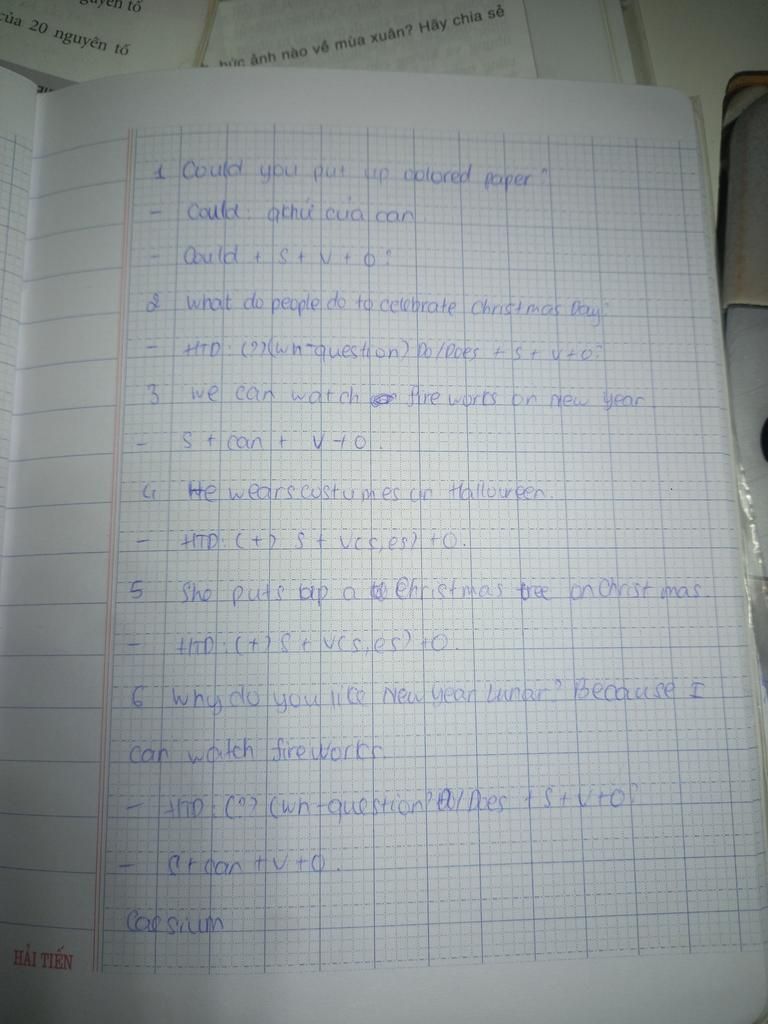 guyên tố
của 20 nguyên tố
bức ảnh nào về mùa xuân? Hãy chia sẻ
1 Could you put up colored paper?
- Could: qkhứ của can
- Could + S + V + O?
2 What do people do to celebrate Christmas Day?
- HTD: (?) (wh-question) Do/Does + S + V + O?
3 We can watch fireworks on New year
- S + can + V + O.
4 He wears costumes on Halloween.
- HTD: (+) S + V(s,es) + O.
5 She puts up a Christmas tree on Christmas.
- HTD: (+) S + V(s,es) + O
6 Why do you like New year Lunar? Because I
can watch fireworks.
- HTD: (?) (wh-question) Do/Does + S + V + O?
- S + can + V + O.
Caesium
HẢI TIẾN